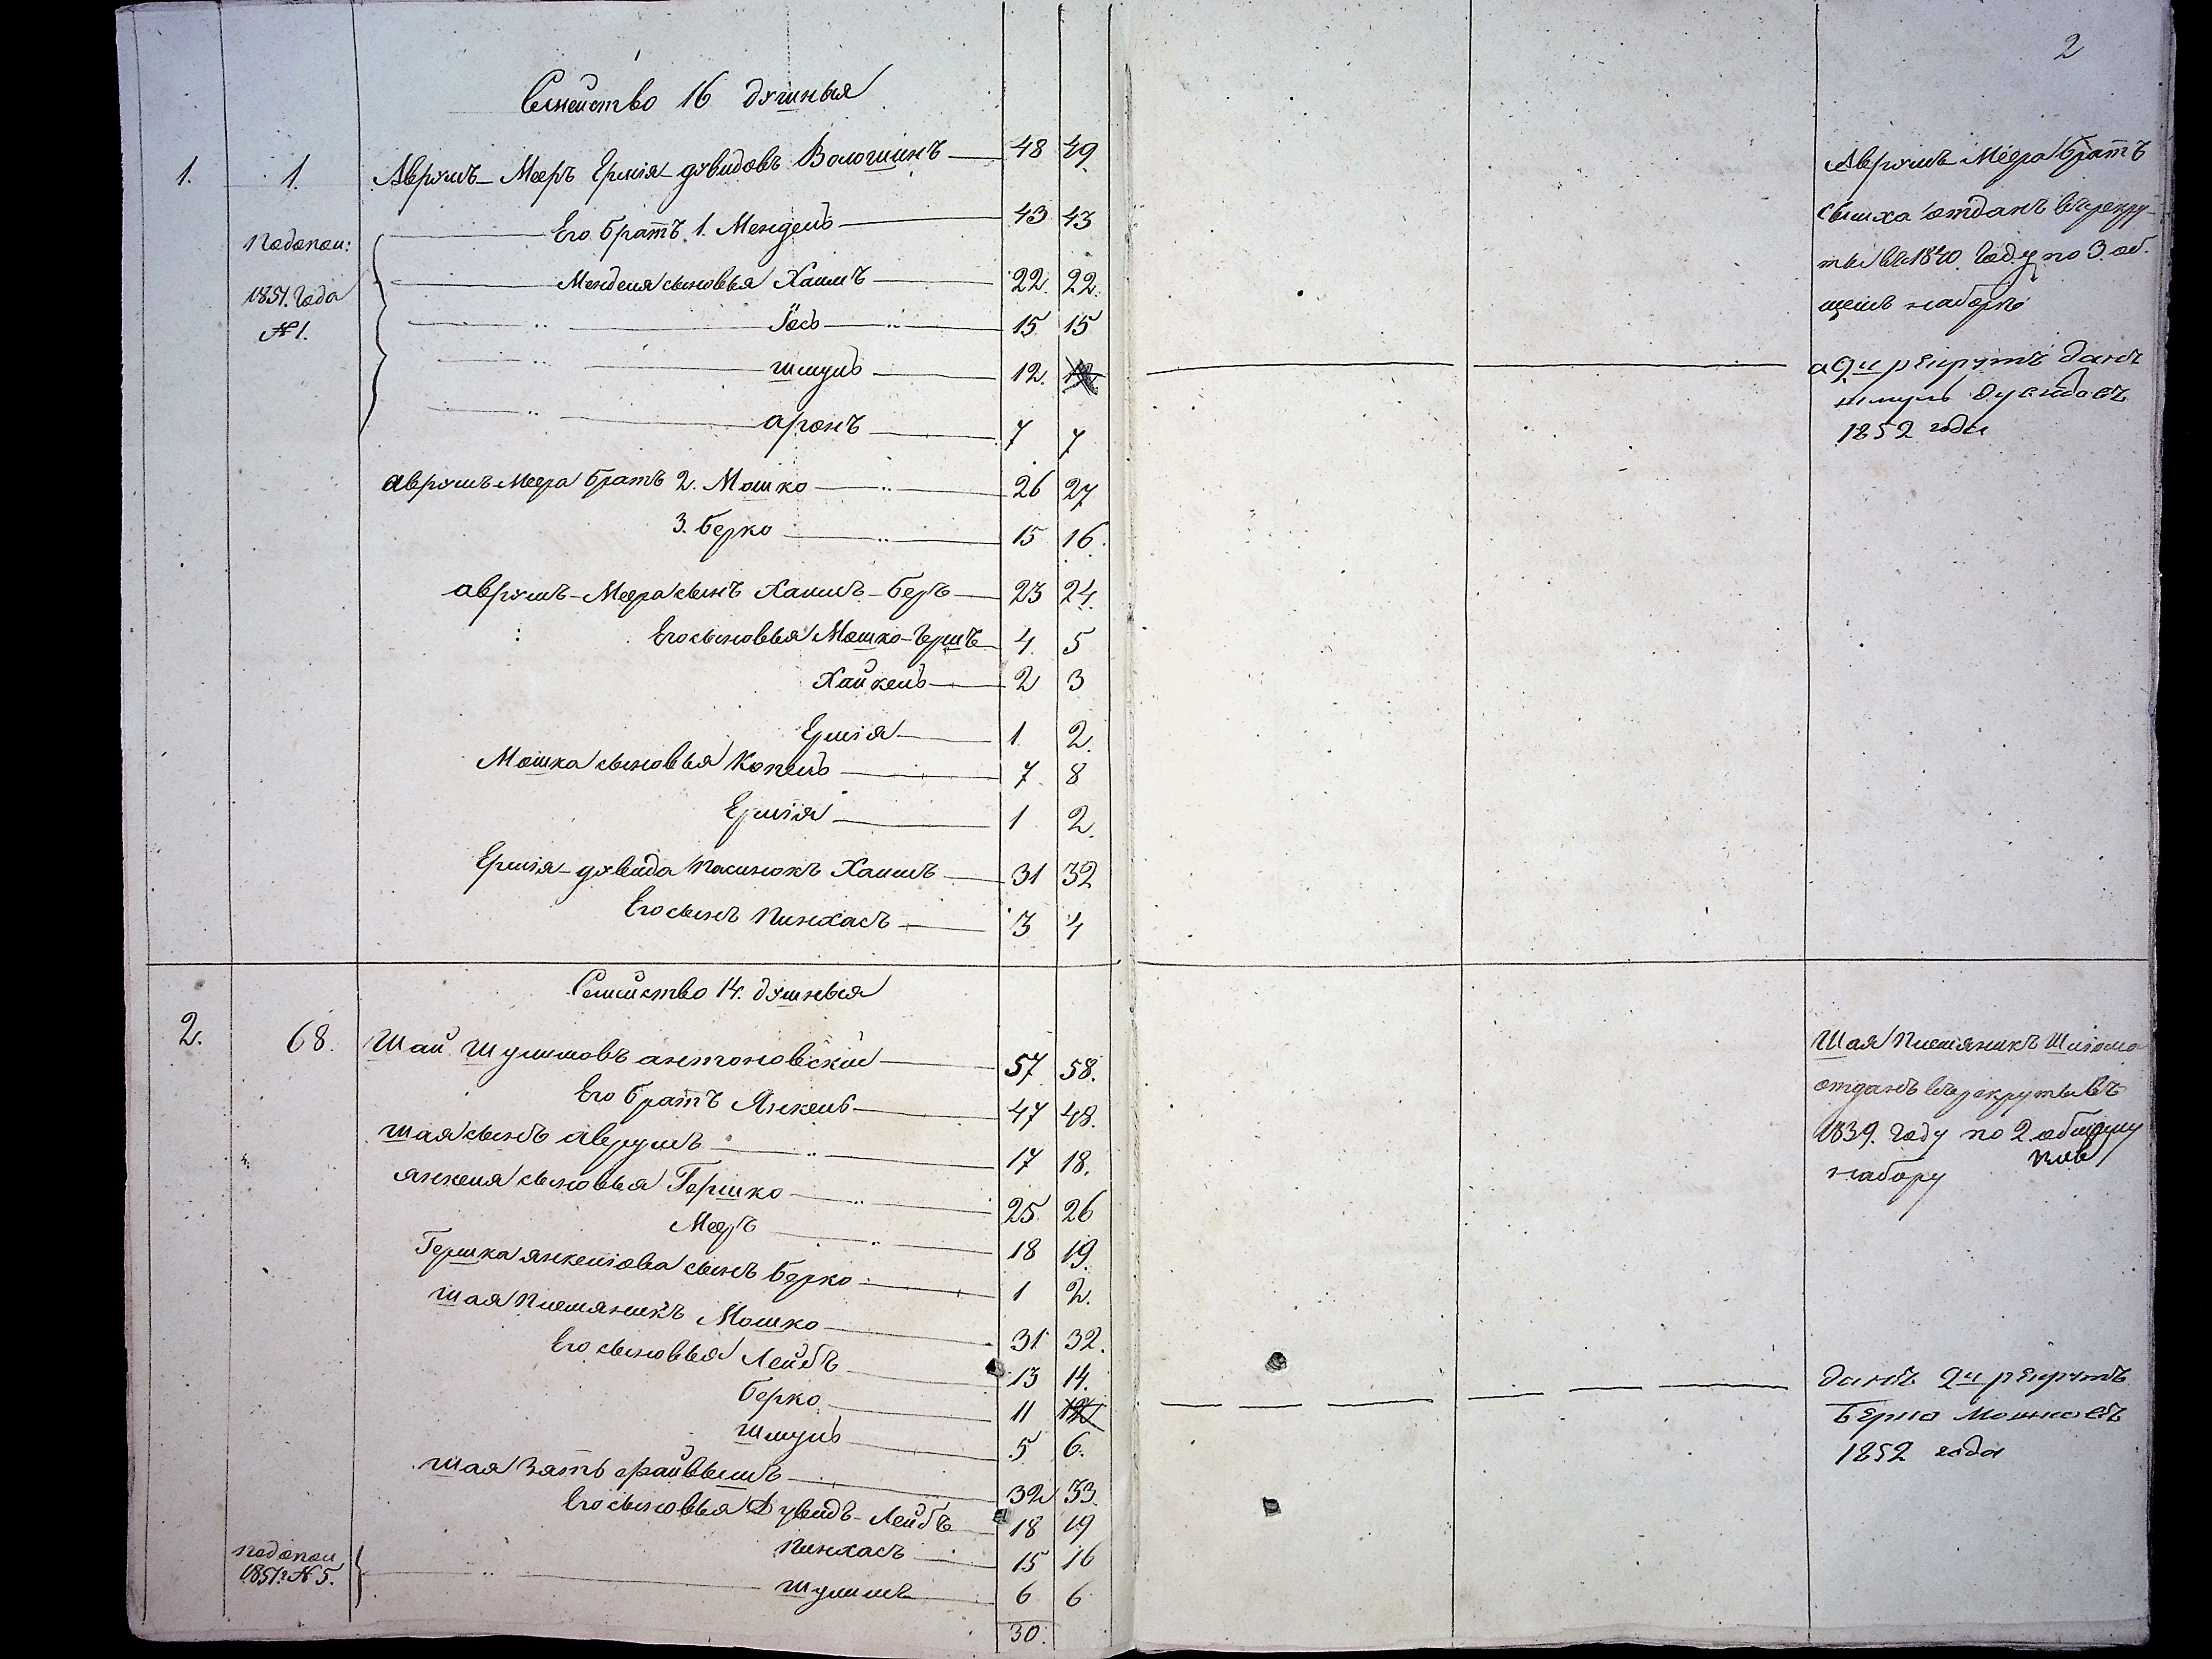 2
Семейство 16 душныя
1. 1. Аврумъ-Мееръ Ермія-дувидовъ Волошинъ 48 49.
Его братъ 1. Мендель 43 43
подопол:
1851. года
№ 1.
Менделя сыновья Хаимъ 22. 22.
Іось 15 15
Шмуль 12. 12
Аронъ 7 7
Аврумъ Меера братъ 2. Мошко 26 27
3. Берко 15 16.
Аврумъ-Меера сынъ Хаимъ-Беръ 23 24.
Его сыновья Мошко-Гершъ 4. 5
Хайкель 2 3
Ермія 1. 2.
Мошка сыновья Копель 7. 8
Ермія 1 2.
Ермія-дувида пасынокъ Хаимъ 31 32
Его сынъ Пинхасъ 3 4
Аврумъ Меера братъ
отданъ въ рекру-
ты въ 1840. году по 3. об-
щемъ наборѣ
рекрутъ данъ
Шмуль Дувидовъ
1852 года
Семейство 14. душныя
2. 68. Шай Шулимовъ Антоновскій 57 58.
Его братъ Янкель 47 48.
Шая сынъ Аврумъ 17 18.
Янкеля сыновья Гершко 25. 26
Мееръ 18 19.
Гершка Янкелова сынъ Берко 1 2.
Шая племяникъ Мошко 31 32.
Его сыновья Лейбъ 13 14.
Берко 11 12
Шмуль 5 6.
Шая зять Файвышъ 32 33.
Его сыновья Дувидъ-Лейбъ 18 19
Пинхасъ 15 16
подопол
1851 г. № 5.
Шулимъ 6 6
30.
Шая племяникъ
отданъ въ рекруты въ
1839. году по 2 общему
набору
данъ рекрутъ
Берко Мошковъ
1852 года